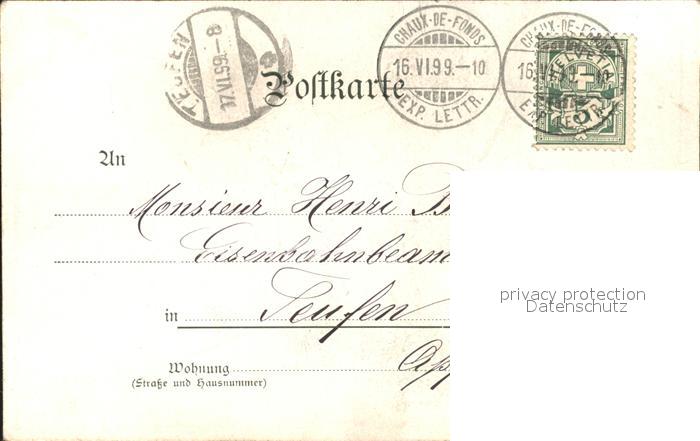 TEUFEN
17.VI.99.–8
CHAUX-DE-FONDS
16.VI.99.–10
EXP. LETTR.
CHAUX-DE-FONDS
EXP. LETTR.
HELVETIA
5
Postkarte
An
Monsieur Henri B
Eisenbahnbeam
in Teufen
App
Wohnung
(Straße und Hausnummer)
privacy protection
Datenschutz